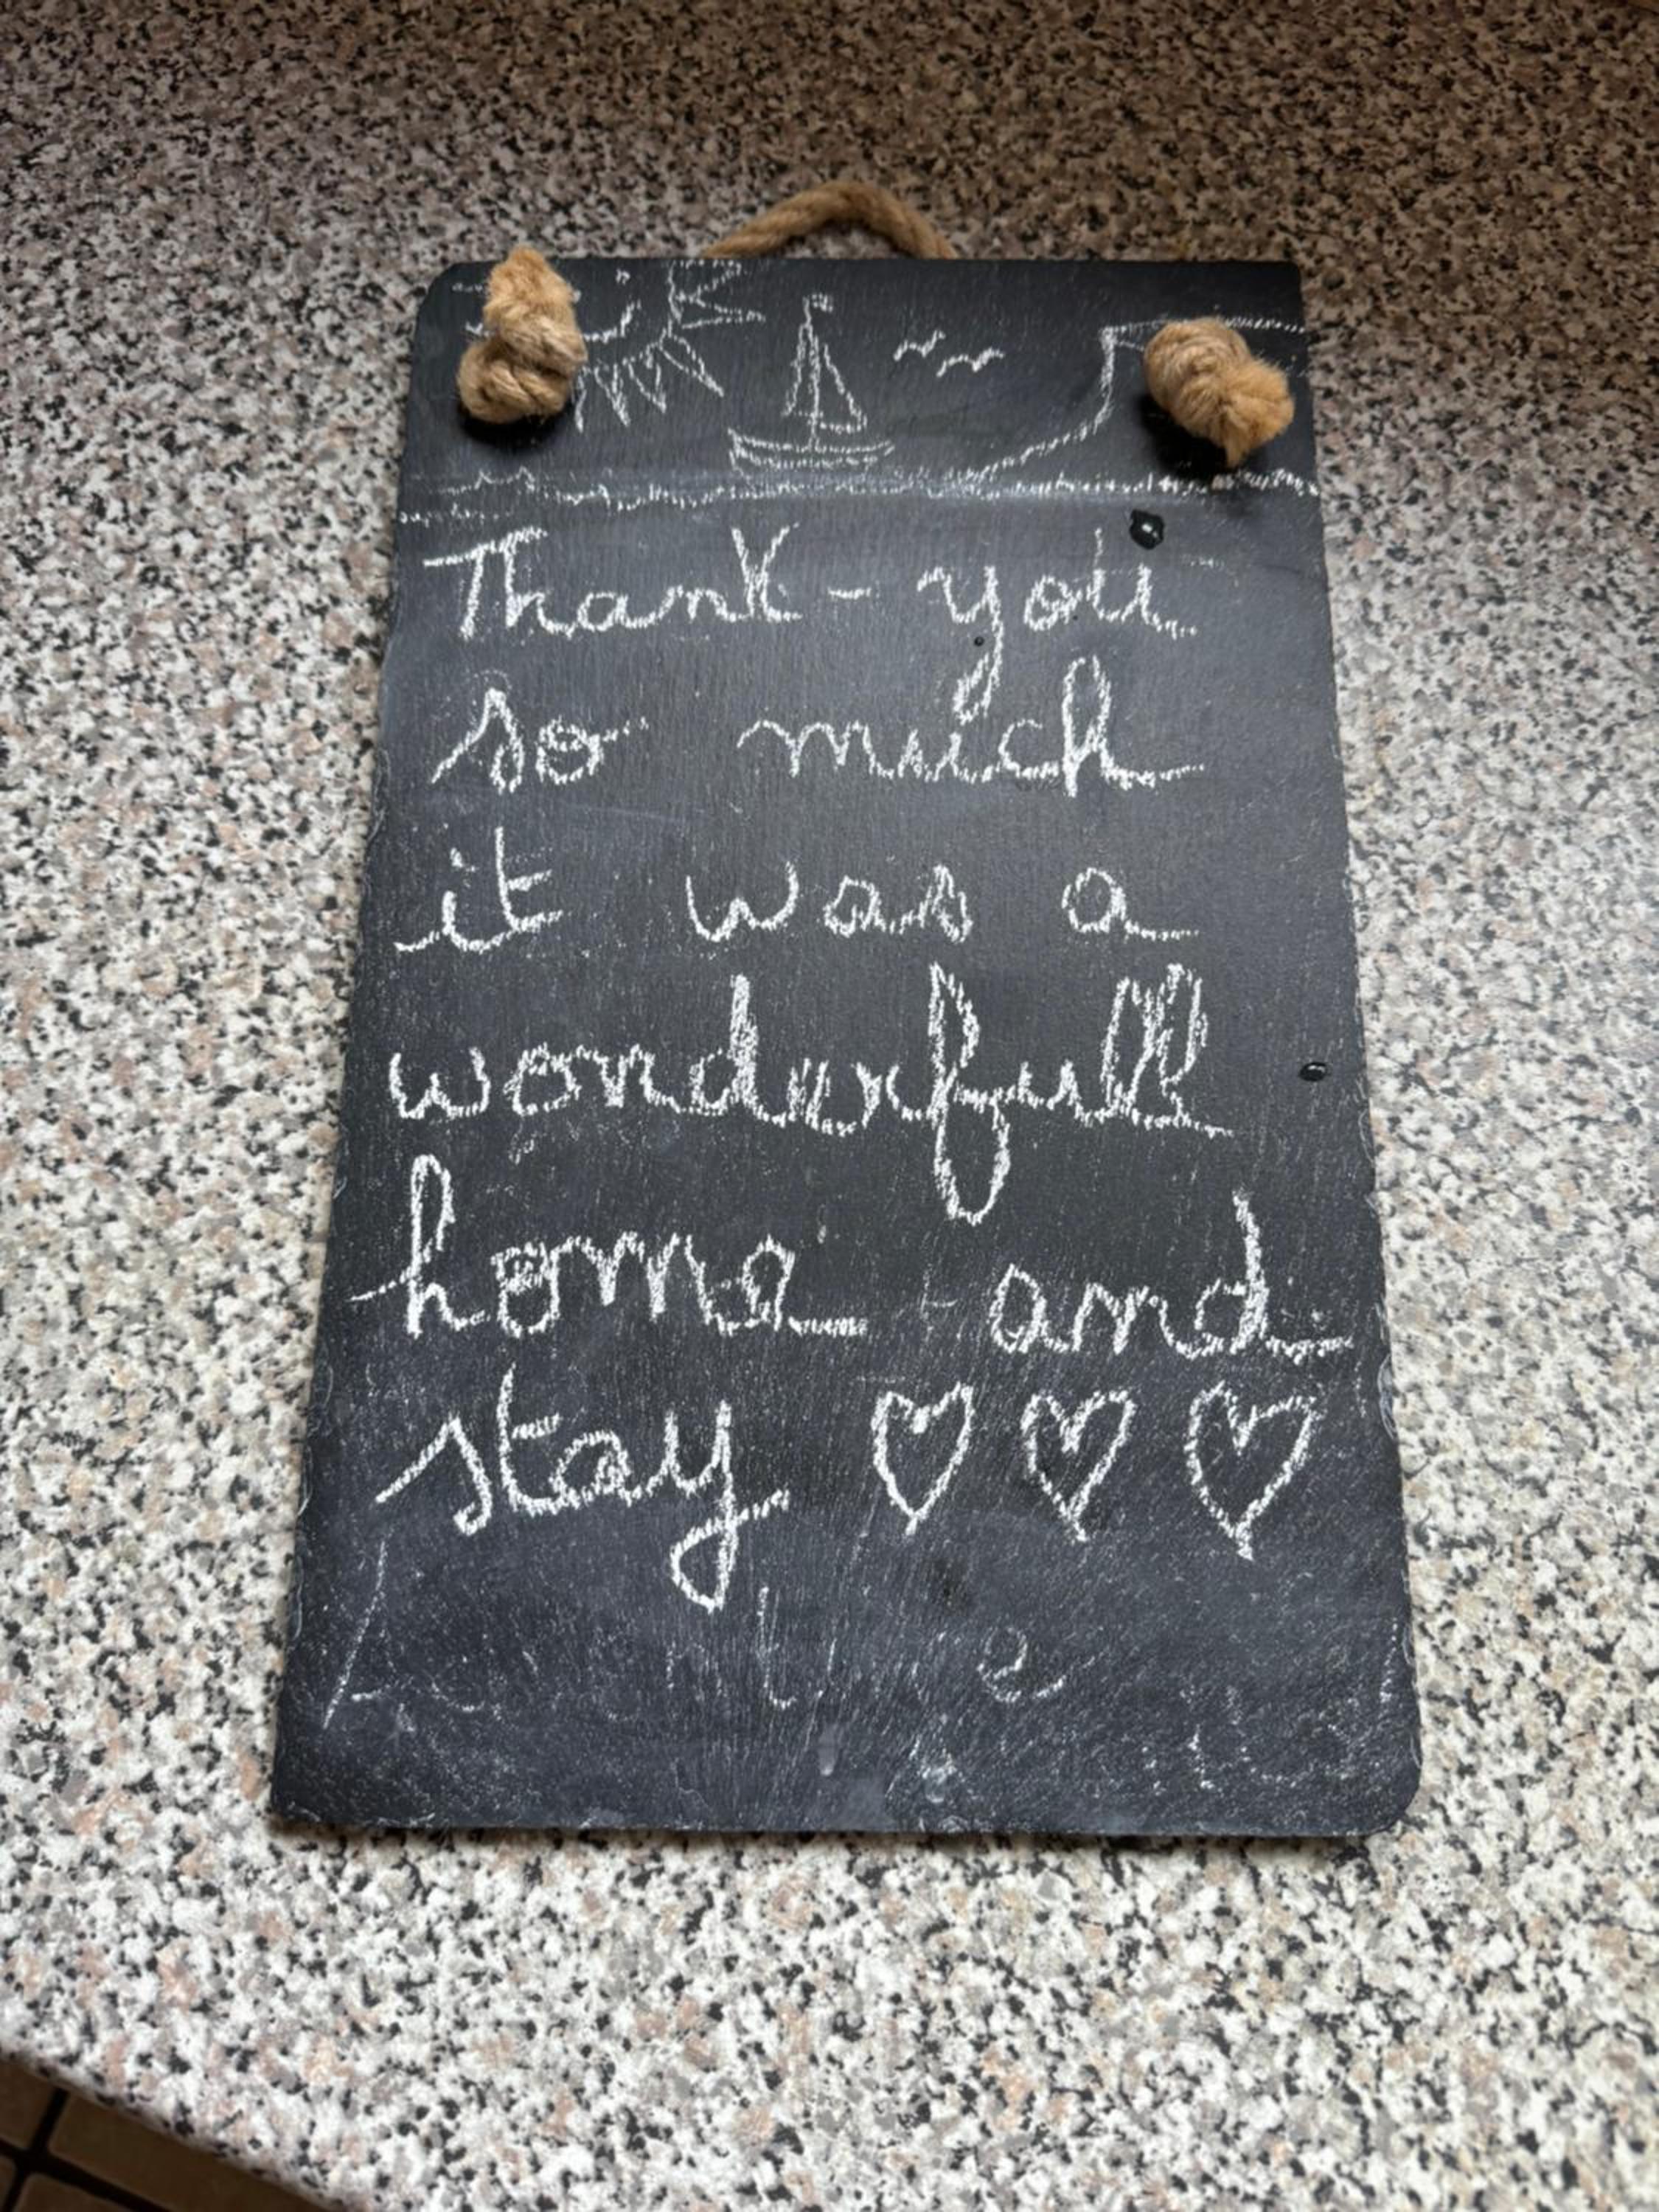 Thank-you
so much
it was a
wonderfull
home and
stay ♡♡♡